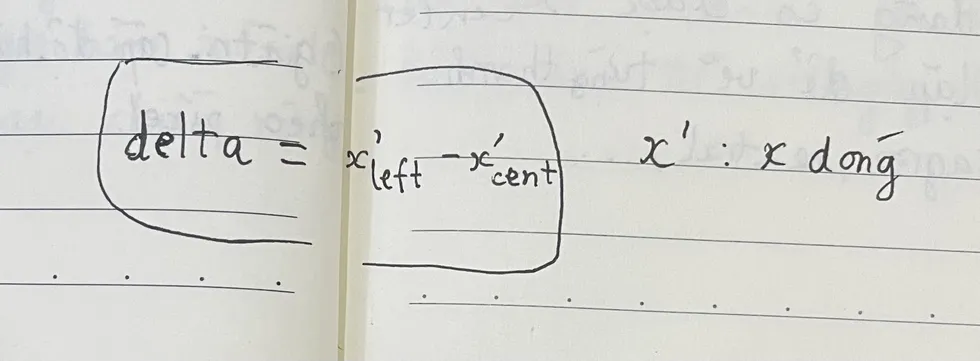 delta = x'left - x'cent x' : x dong